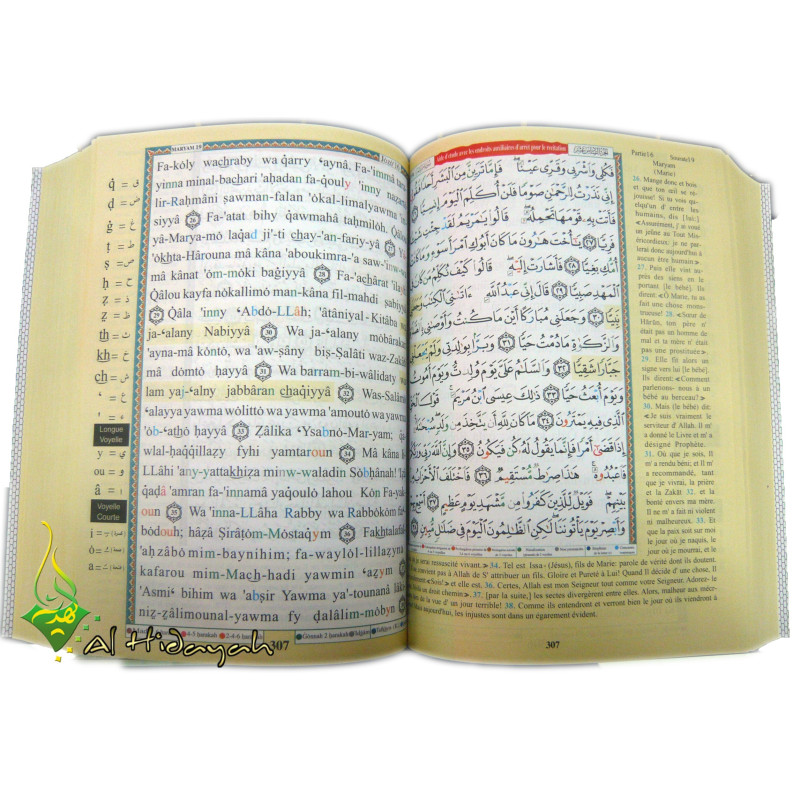 MARYAM 19
Fa-kòly wachraby wa qarry 'aynâ. Fa-'imma
yinna minal-bachari 'aḥadan fa-qouly 'inny naza
lir-Raḥmâni ṣawman-falan 'òkal-limalyawma
siyyâ 26 Fa-'atat bihy qawmahâ taḥmilòh. Qâ
yâ-Marya-mò laqad ji'-ti chay-'an-fariy-yâ 27
'òkhta-Hârouna mâ kâna 'aboukimra-'a saw-'inw
mâ kânat 'òm-mòki bagiyyâ 28 Fa-'achârat 'ilay
Qâlou kayfa nòkallimò man-kâna fil-mahdi ṣabiyy
29 Qâla 'inny 'Abdò-LLâh; 'âtâniyal-Kitâba
ja-'alany Nabiyyâ 30 Wa ja-'alany mòbârak
'ayna-mâ kòntò, wa-'aw-ṣâny biṣ-Ṣalâti waz-Zak
mâ dòmtò ḥayyâ 31 Wa barram-bi-wâlidaty wa
lam yaj-'alny jabbâran chaqiyyâ 32 Was-Salâm
'alayya yawma wòlittò wa yawma 'amoutò wa yawma
'òb-'athò ḥayyâ 33 Ẓâlika 'Ysabnò-Mar-yam; q
wlal-ḥaqqillaẓy fyhi yamtaroun 34 Mâ kâna
LLâhi 'any-yattakhiẓa minw-waladin Sòbḥânah! 'i
qaḍâ 'amran fa-'innamâ yaqoulò lahou Kòn Fa-yak
oun 35 Wa 'inna-LLâha Rabby wa Rabbòkòm fa
bòdouh; hâẓâ Ṣirâṭòm-Mòstaqym 36 Fakhtalafal
'aḥzâbò mim-baynihim; fa-waylòl-lillaẓyna
kafarou mim-Mach-hadi yawmin 'aẓym 37
'Asmi' bihim wa 'abṣir Yawma ya'-tounanâ lâkin
niẓ-ẓâlimounal-yawma fy ḍalâlim-mòbyn
4-5 ḥarakah 2-4-6 ḥarakah Ġonnah 2 ḥarakah
307
q̇ = ق
ḍ = ض
ġ = غ
ṭ = ط
ṣ = ص
ḥ = ح
ẓ = ظ
th = ث
kh = خ
ch = ش
' = ع
' = ء
Longue
Voyelle
y = ي
ou = و
â = ا
Voyelle
Courte
i =
ò =
a =
Al Hidayah
Aide d'étude avec les endroits auxiliaires d'arrêt pour le récitation
فَكُلِي وَاشْرَبِي وَقَرِّي عَيْنًا ۖ فَإِمَّا تَرَيِنَّ مِنَ الْبَشَرِ أَحَدًا
إِنِّي نَذَرْتُ لِلرَّحْمَٰنِ صَوْمًا فَلَنْ أُكَلِّمَ الْيَوْمَ إِنسِيًّا
فَأَتَتْ بِهِ قَوْمَهَا تَحْمِلُهُ ۖ قَالُوا يَا مَرْيَمُ لَقَدْ جِئْتِ شَيْئًا
فَرِيًّا ٢٧ يَا أُخْتَ هَارُونَ مَا كَانَ أَبُوكِ امْرَأَ سَوْءٍ وَمَا
أُمُّكِ بَغِيًّا ٢٨ فَأَشَارَتْ إِلَيْهِ ۖ قَالُوا كَيْفَ نُكَلِّمُ مَن كَانَ
الْمَهْدِ صَبِيًّا ٢٩ قَالَ إِنِّي عَبْدُ اللَّهِ آتَانِيَ الْكِتَابَ
نَبِيًّا ٣٠ وَجَعَلَنِي مُبَارَكًا أَيْنَ مَا كُنتُ وَأَوْصَانِي
وَالزَّكَاةِ مَا دُمْتُ حَيًّا ٣١ وَبَرًّا بِوَالِدَتِي وَلَمْ يَجْعَلْنِي
جَبَّارًا شَقِيًّا ٣٢ وَالسَّلَامُ عَلَيَّ يَوْمَ وُلِدتُّ وَيَوْمَ أَمُوتُ
وَيَوْمَ أُبْعَثُ حَيًّا ٣٣ ذَٰلِكَ عِيسَى ابْنُ مَرْيَمَ ۚ قَوْلَ
الَّذِي فِيهِ يَمْتَرُونَ ٣٤ مَا كَانَ لِلَّهِ أَن يَتَّخِذَ مِن وَلَدٍ ۖ سُبْحَانَهُ
إِذَا قَضَىٰ أَمْرًا فَإِنَّمَا يَقُولُ لَهُ كُن فَيَكُونُ ٣٥ وَإِنَّ اللَّهَ
فَاعْبُدُوهُ ۚ هَٰذَا صِرَاطٌ مُّسْتَقِيمٌ ٣٦ فَاخْتَلَفَ الْأَحْزَابُ
بَيْنِهِمْ ۖ فَوَيْلٌ لِّلَّذِينَ كَفَرُوا مِن مَّشْهَدِ يَوْمٍ عَظِيمٍ ٣٧
وَأَبْصِرْ يَوْمَ يَأْتُونَنَا ۖ لَٰكِنِ الظَّالِمُونَ الْيَوْمَ فِي ضَلَالٍ مُّبِينٍ ٣٨
Partie16 Sourate19
Maryam
(Marie)
26. Mange donc et bois
et que ton œil se ré-
jouisse! Si tu vois quel-
qu'un d' entre les
humains, dis [lui:]
«Assurément, j' ai voué
un jeûne au Tout Mis-
éricordieux: je ne par-
lerai donc aujourd'hui à
aucun être humain».
27. Puis elle vint aup-
rès des siens en le
portant [le bébé]. Ils
dirent: «Ô Marie, tu as
fait une chose mons-
trueuse! 28. «Sœur de
Hârûn, ton père n'
était pas un homme de
mal et ta mère n' était
pas une prostituée».
29. Elle fit alors un
signe vers lui [le bébé].
Ils dirent: «Comment
parlerions- nous à un
bébé au berceau? »
30. Mais (le bébé) dit:
«Je suis vraiment le
serviteur d' Allah. Il m'
a donné le Livre et m'a
désigné Prophète.
31. Où que je sois, Il
m' a rendu béni; et Il m'
a recommandé, tant
que je vivrai, la prière
et la Zakât 32. et la
bonté envers ma mère.
Il ne m' a fait ni violent
ni malheureux. 33. Et
que la paix soit sur moi
le jour où je naquis,
le jour où je mourrai, et le
jour où je serai ressuscité vivant.» 34. Tel est Issa (Jésus), fils de Marie: parole de vérité dont ils doutent.
Il ne convient pas à Allah de S' attribuer un fils. Gloire et Pureté à Lui! Quand Il décide d' une chose, Il
dit: «Sois» et elle est. 36. Certes, Allah est mon Seigneur tout comme votre Seigneur. Adorez-le
un droit chemin». 37. [par la suite,] les sectes divergèrent entre elles. Alors, malheur aux mécr-
la vue d' un jour terrible! 38. Comme ils entendront et verront bien le jour où ils viendront à
aujourd'hui, les injustes sont dans un égarement évident.
307